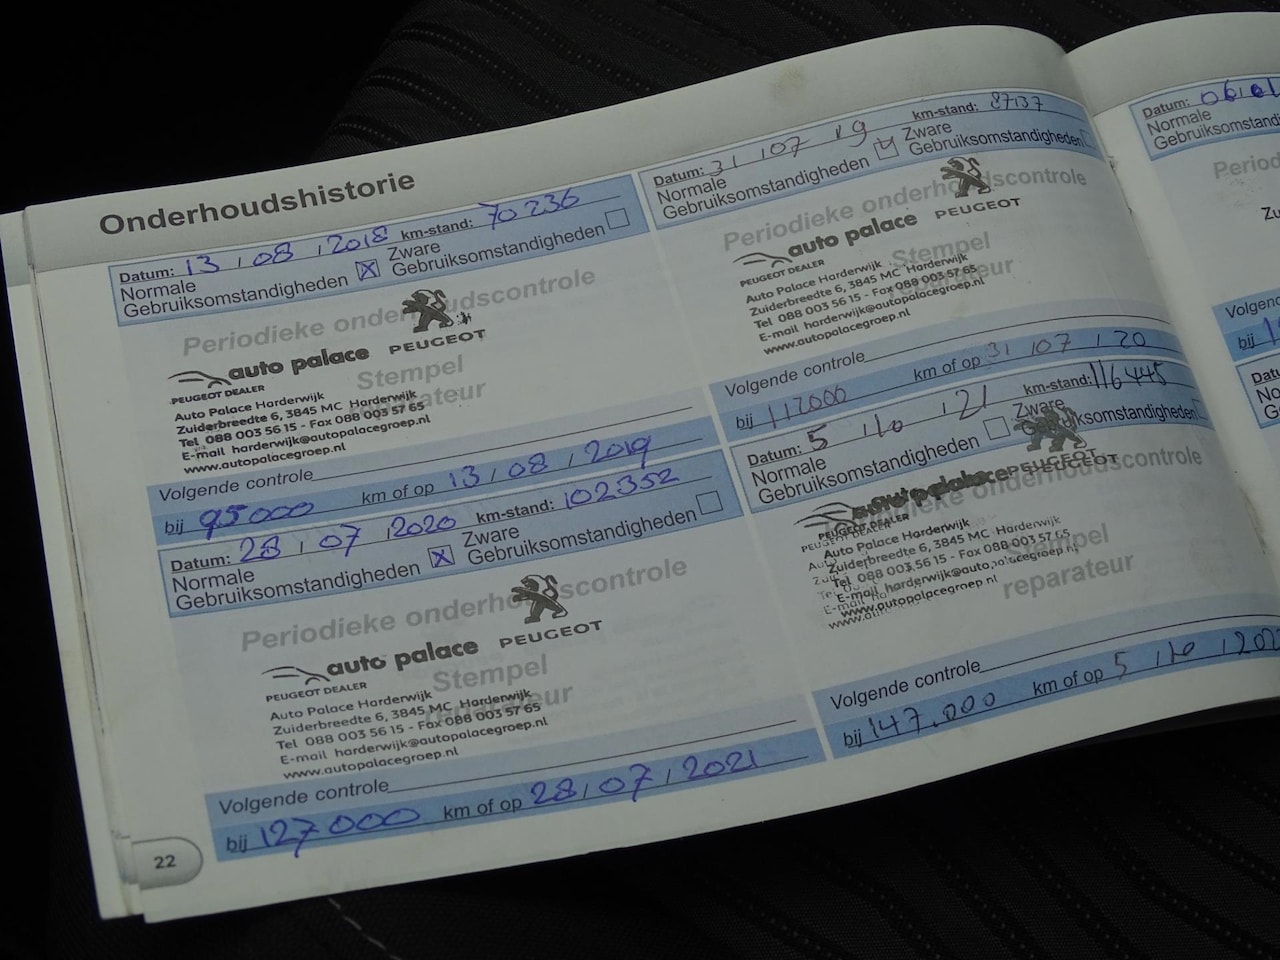 Onderhoudshistorie
Datum: 13 / 08 / 2018 km-stand: 70236
Normale Gebruiksomstandigheden X Zware Gebruiksomstandigheden
Periodieke onderhoudscontrole
PEUGEOT
auto palace
PEUGEOT DEALER
Stempel reparateur
Auto Palace Harderwijk
Zuiderbreedte 6, 3845 MC Harderwijk
Tel 088 003 56 15 - Fax 088 003 57 65
E-mail harderwijk@autopalacegroep.nl
www.autopalacegroep.nl
Volgende controle
bij 95000 km of op 13 / 08 / 2019
Datum: 28 / 07 / 2020 km-stand: 102352
Normale Gebruiksomstandigheden X Zware Gebruiksomstandigheden
Periodieke onderhoudscontrole
PEUGEOT
auto palace
PEUGEOT DEALER
Stempel reparateur
Auto Palace Harderwijk
Zuiderbreedte 6, 3845 MC Harderwijk
Tel 088 003 56 15 - Fax 088 003 57 65
E-mail harderwijk@autopalacegroep.nl
www.autopalacegroep.nl
Volgende controle
bij 127000 km of op 28 / 07 / 2021
22
Datum: 31 / 07 / 19 km-stand: 87137
Normale Gebruiksomstandigheden Zware Gebruiksomstandigheden
Periodieke onderhoudscontrole
PEUGEOT
auto palace
PEUGEOT DEALER
Stempel reparateur
Auto Palace Harderwijk
Zuiderbreedte 6, 3845 MC Harderwijk
Tel 088 003 56 15 - Fax 088 003 57 65
E-mail harderwijk@autopalacegroep.nl
www.autopalacegroep.nl
Volgende controle
bij 112000 km of op 31 / 07 / 20
Datum: 5 / 10 / 21 km-stand: 116445
Normale Gebruiksomstandigheden Zware Gebruiksomstandigheden
Periodieke onderhoudscontrole
PEUGEOT
auto palace
PEUGEOT DEALER
Stempel reparateur
Auto Palace Harderwijk
Zuiderbreedte 6, 3845 MC Harderwijk
Tel 088 003 56 15 - Fax 088 003 57 65
E-mail harderwijk@autopalacegroep.nl
www.autopalacegroep.nl
Volgende controle
bij 147.000 km of op 5 / 10 / 202
Datum: 06
Normale
Gebruiksomstandig
Period
Zu
Volgen
bij
Datu
No
Ge